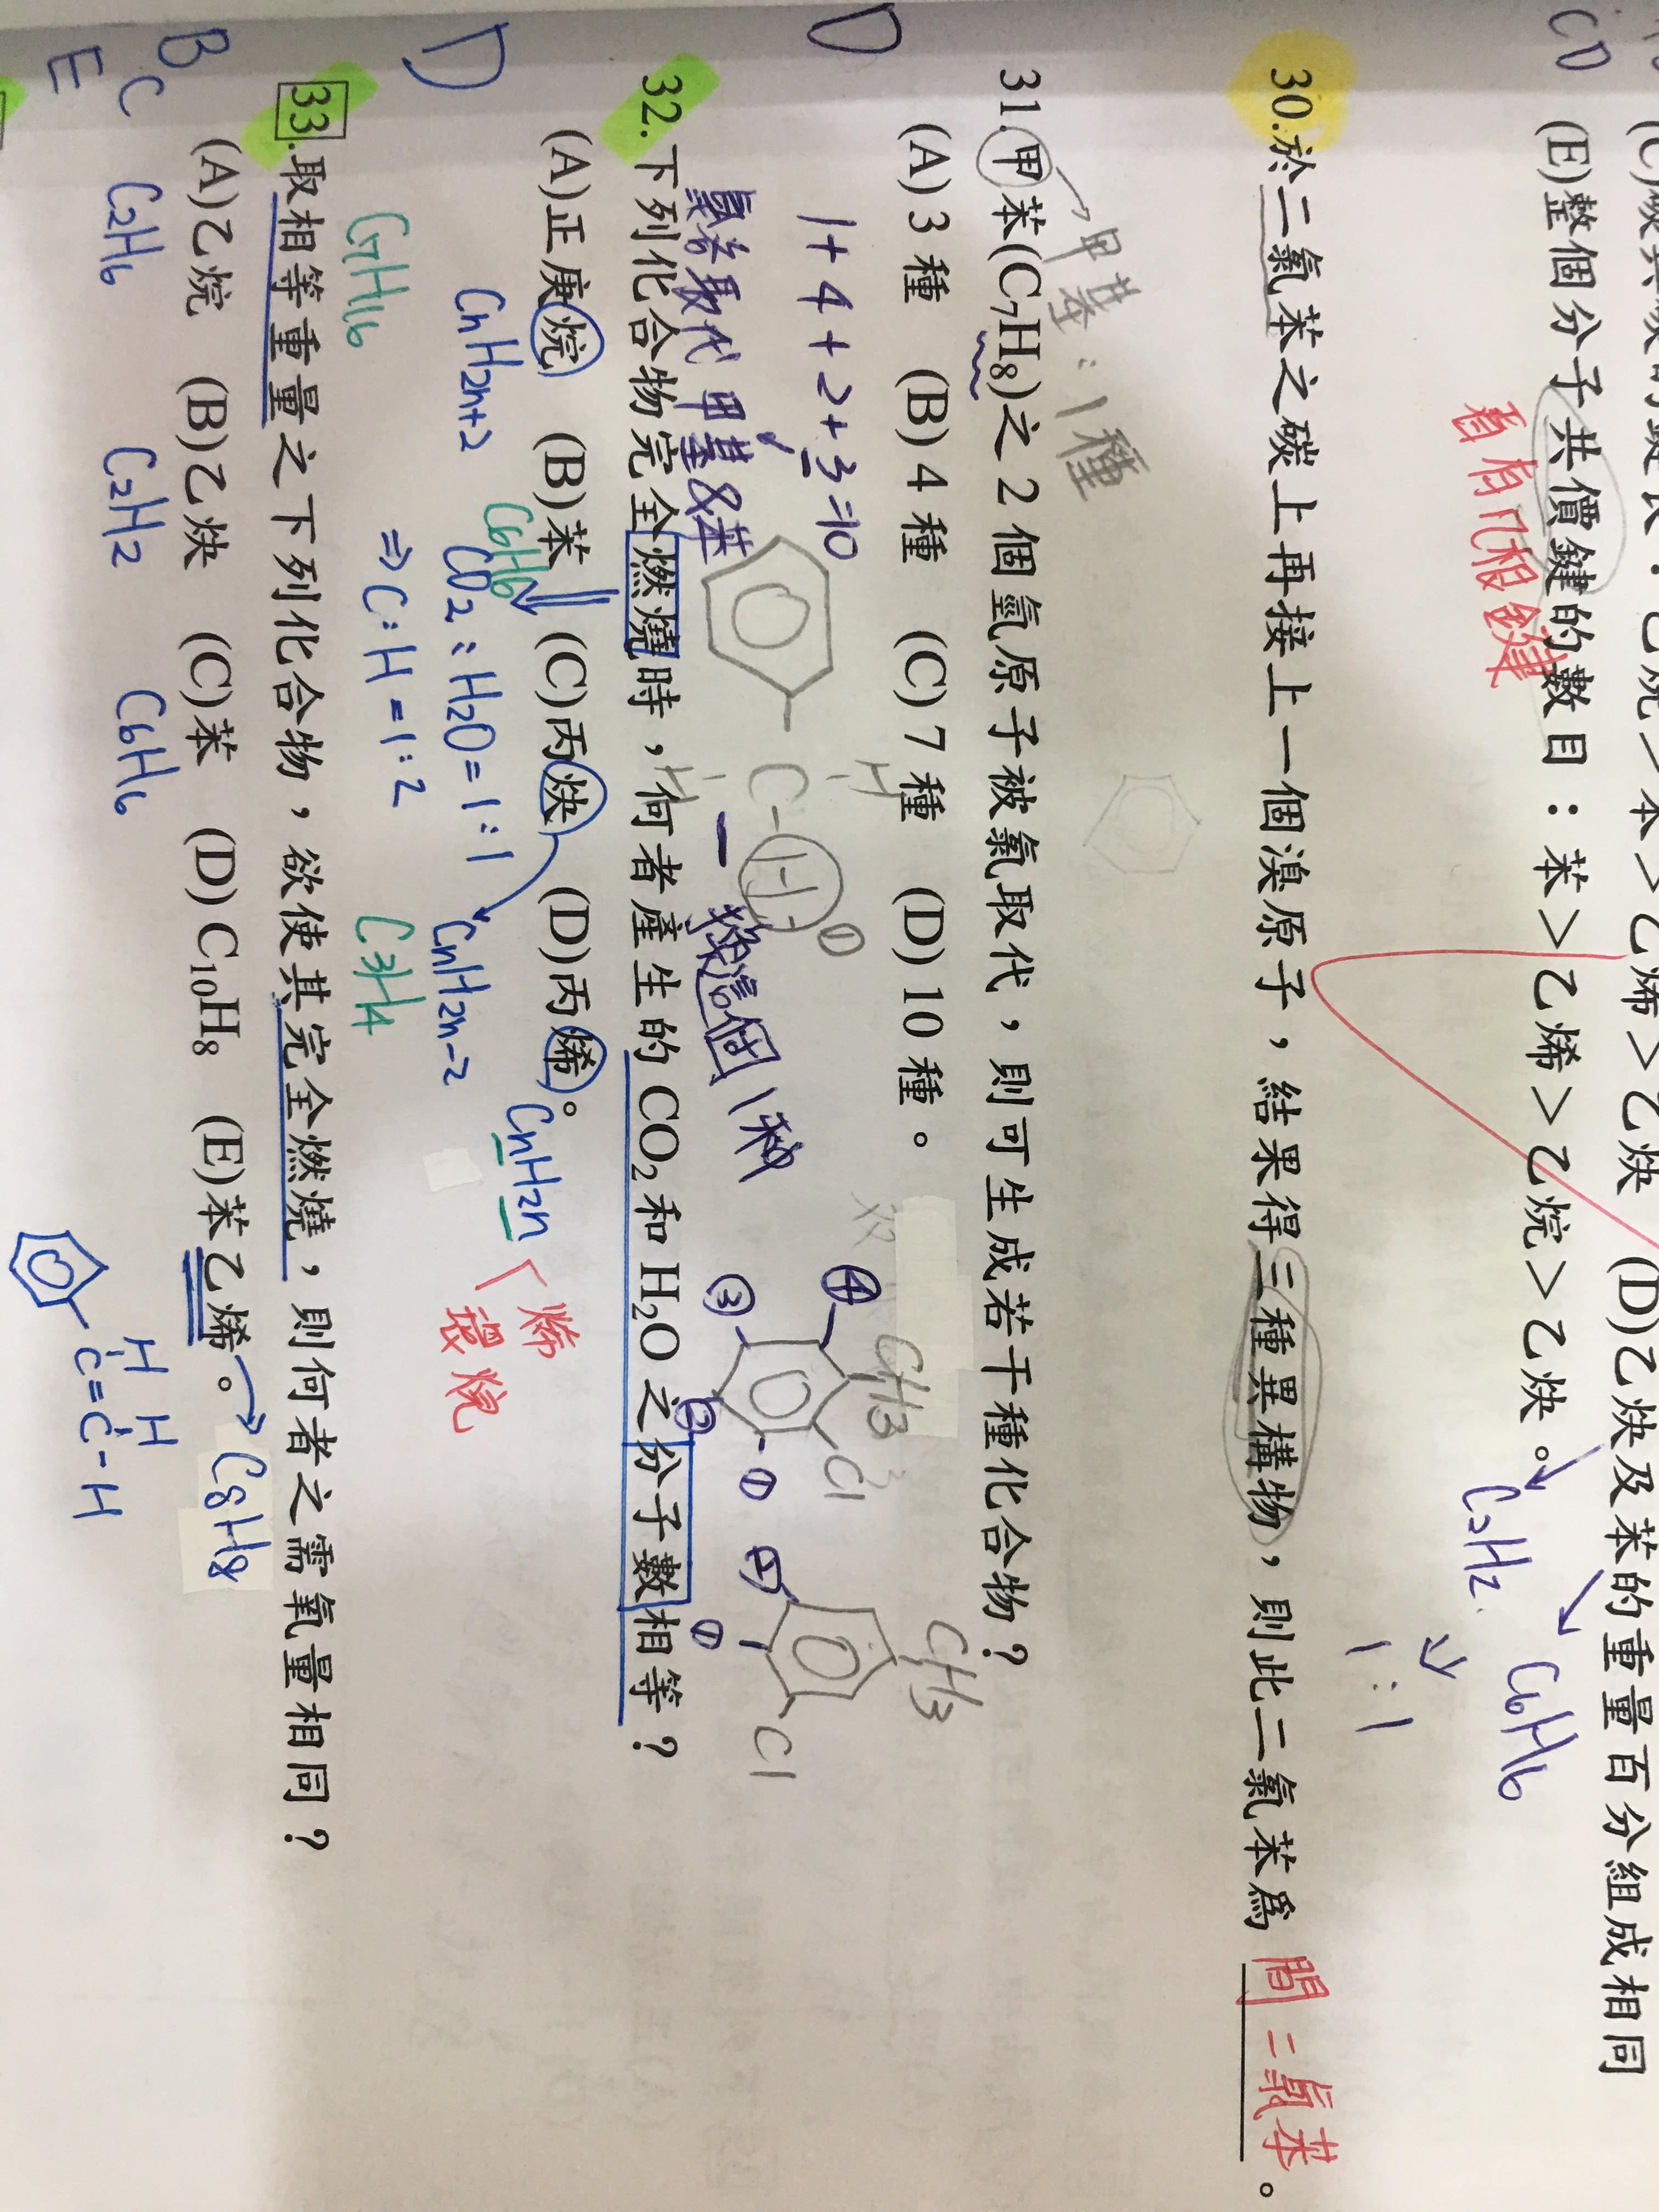 (C)碳與碳的鍵長:乙烷>苯>乙烯>乙炔 (D)乙炔及苯的重量百分組成相同
C2H2 C6H6
⇒ 1:1
CD (E)整個分子共價鍵的數目:苯>乙烯>乙烷>乙炔。
看有几根鍵
30.於二氯苯之碳上再接上一個溴原子,結果得三種異構物,則此二氯苯爲間二氯苯。
→甲苯:1種
31.甲苯(C7H8)之2個氫原子被氯取代,則可生成若干種化合物?
D (A)3種 (B)4種 (C)7種 (D)10種。
1+4+2+3=10
H C-H H ① CH3 Cl ① ② ③ ④ CH3 Cl ① ②
氯若取代甲基&苯 換這個1種
32.下列化合物完全燃燒時,何者產生的CO2和H2O之分子數相等?
D (A)正庚烷 (B)苯 (C)丙炔 (D)丙烯。
CnH2n+2 C6H6 CO2:H2O=1:1 CnH2n-2 CnH2n 烯 環烷
C7H16 ⇒C:H=1:2 C3H4
33.取相等重量之下列化合物,欲使其完全燃燒,則何者之需氧量相同?
BCE (A)乙烷 (B)乙炔 (C)苯 (D)C10H8 (E)苯乙烯。→C8H8
C2H6 C2H2 C6H6
H H
C=C-H